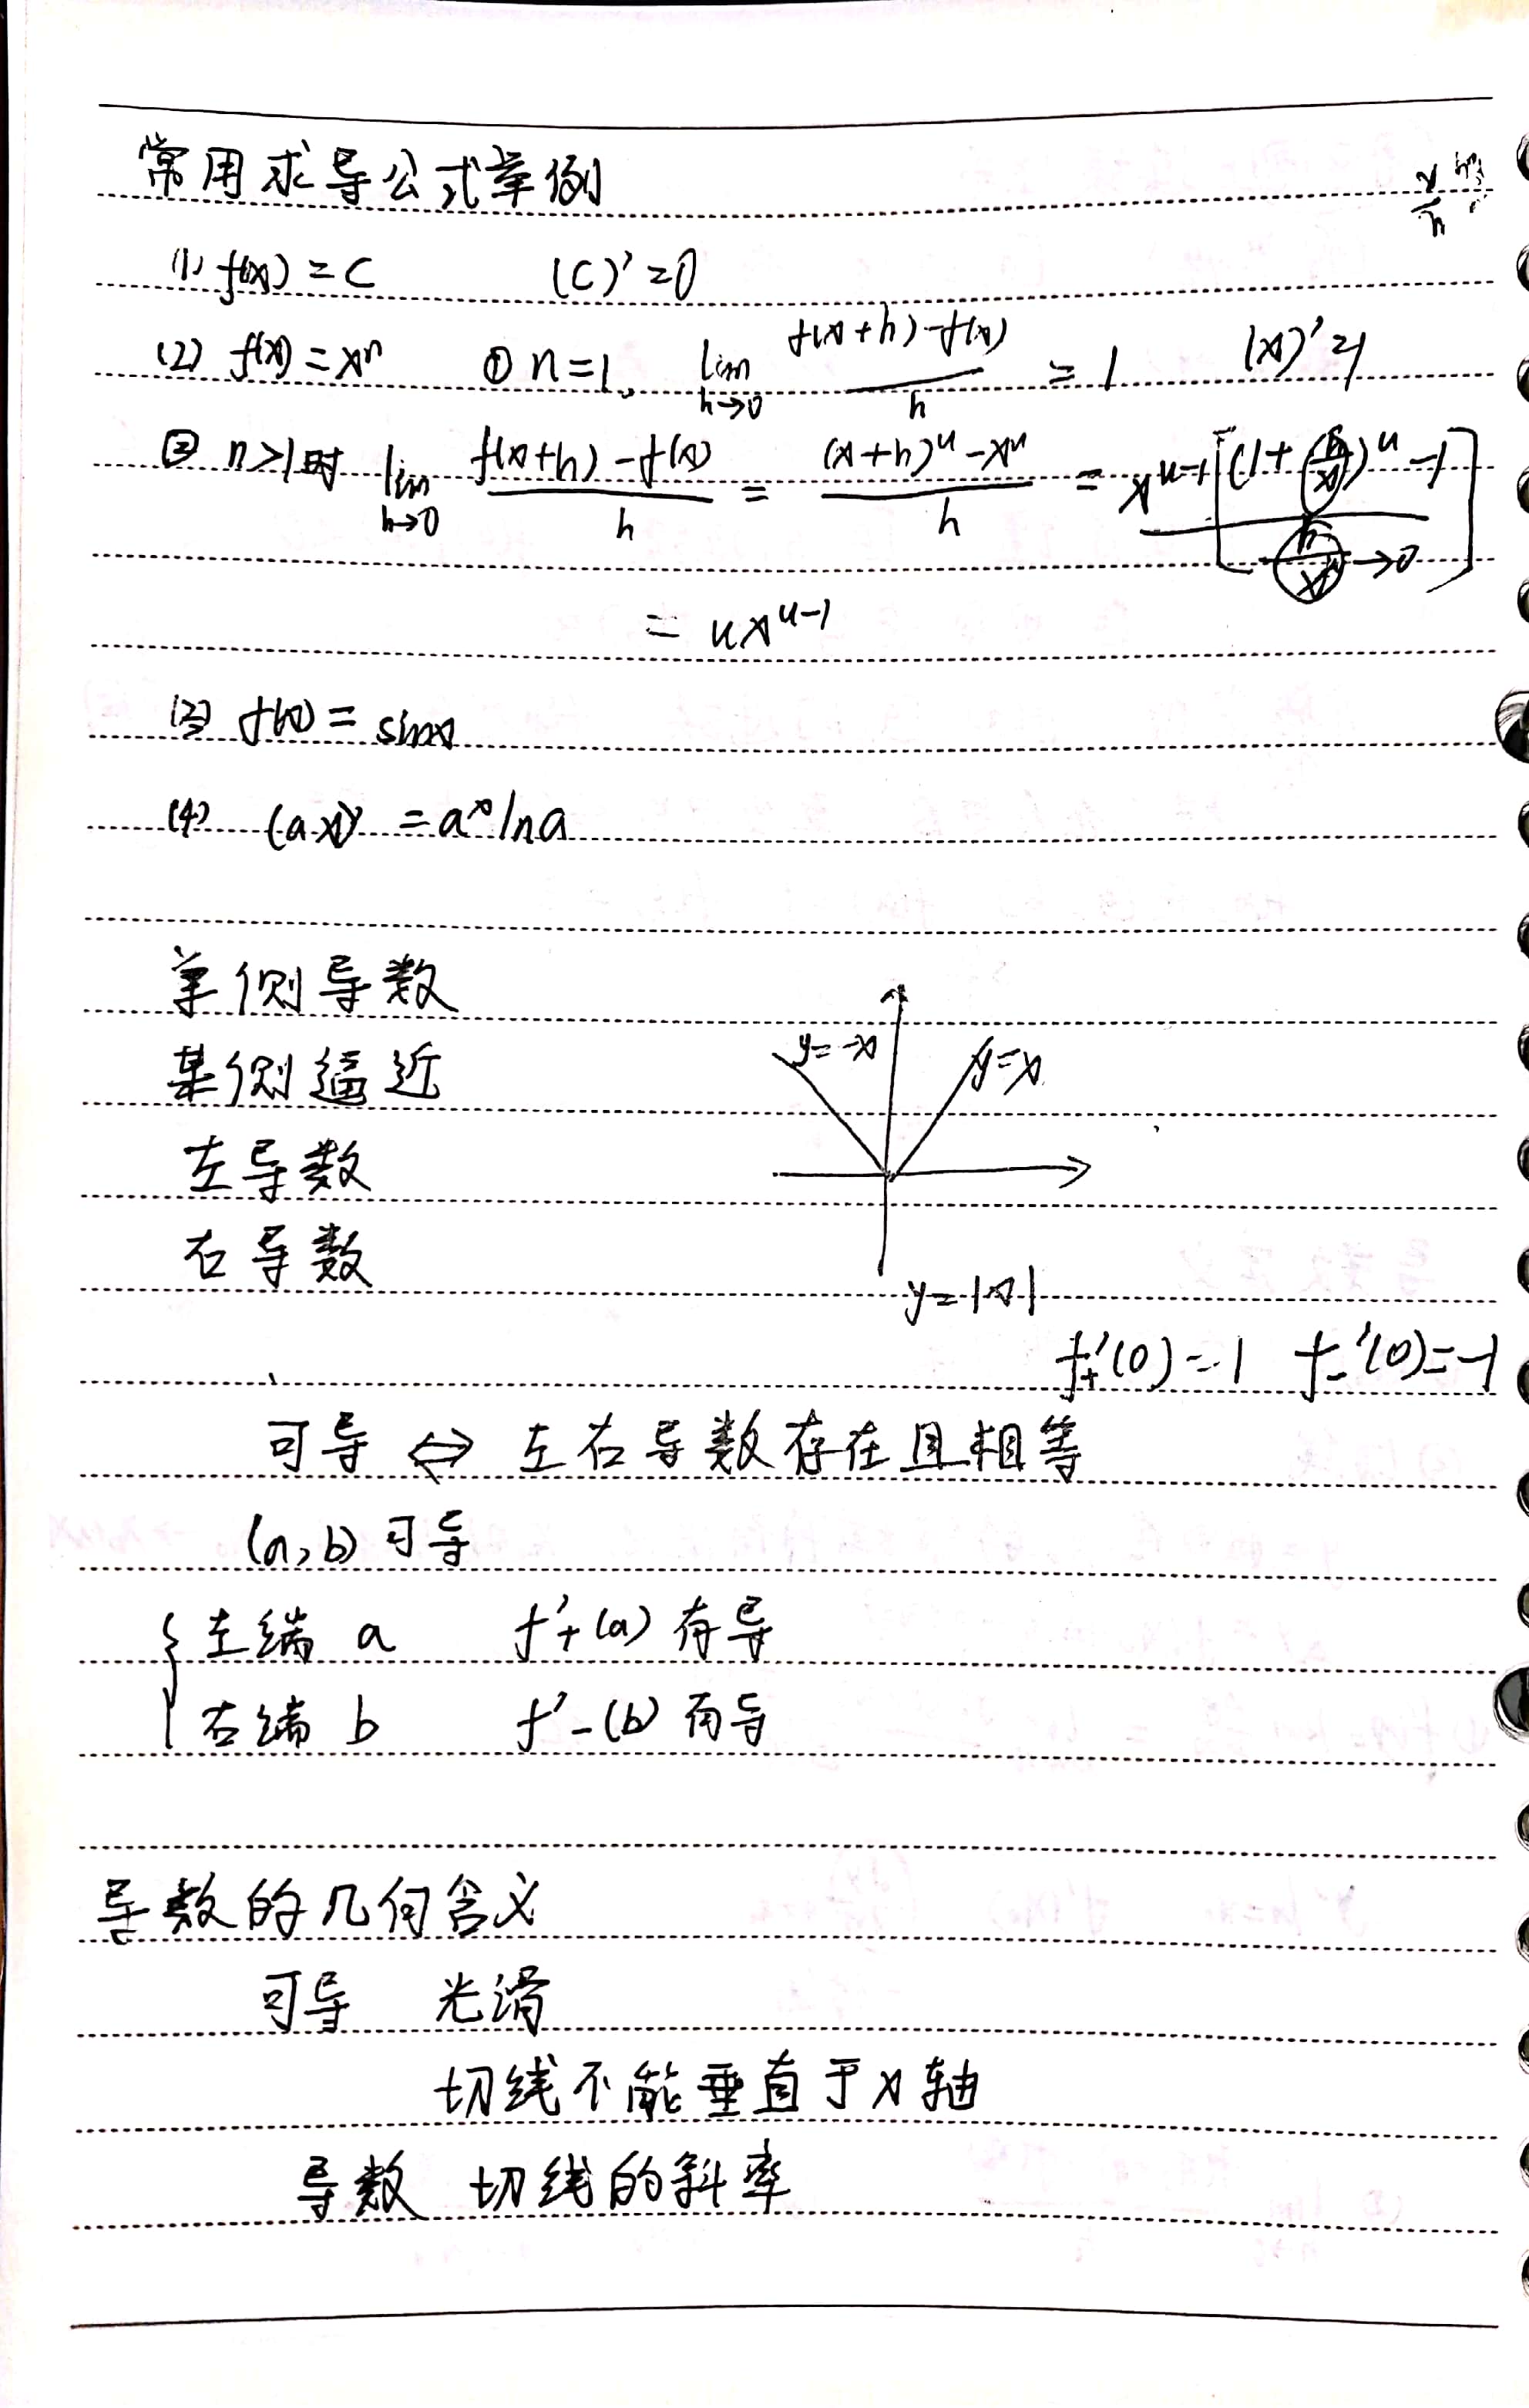 常用求导公式举例
(1) f(x) = C (C)' = 0
(2) f(x) = xⁿ ① n=1, lim h→0 f(x+h)-f(x) / h = 1 (x)'=1
② n>1时 lim h→0 f(x+h)-f(x) / h = (x+h)ᵘ-xᵘ / h = xᵘ⁻¹[(1+(h/x))ᵘ-1 / h/x →0]
= uxᵘ⁻¹
(3) f(x) = sinx
(4) (aˣ)' = aˣlna
单侧导数
某侧逼近
y=-x y=x
左导数
右导数
y=|x|
f₊'(0)=1 f₋'(0)=-1
可导 ⇔ 左右导数存在且相等
(a,b)可导
{左端 a f'₊(a) 存导
右端 b f'₋(b) 存导
导数的几何含义
可导 光滑
切线不能垂直于x轴
导数 切线的斜率